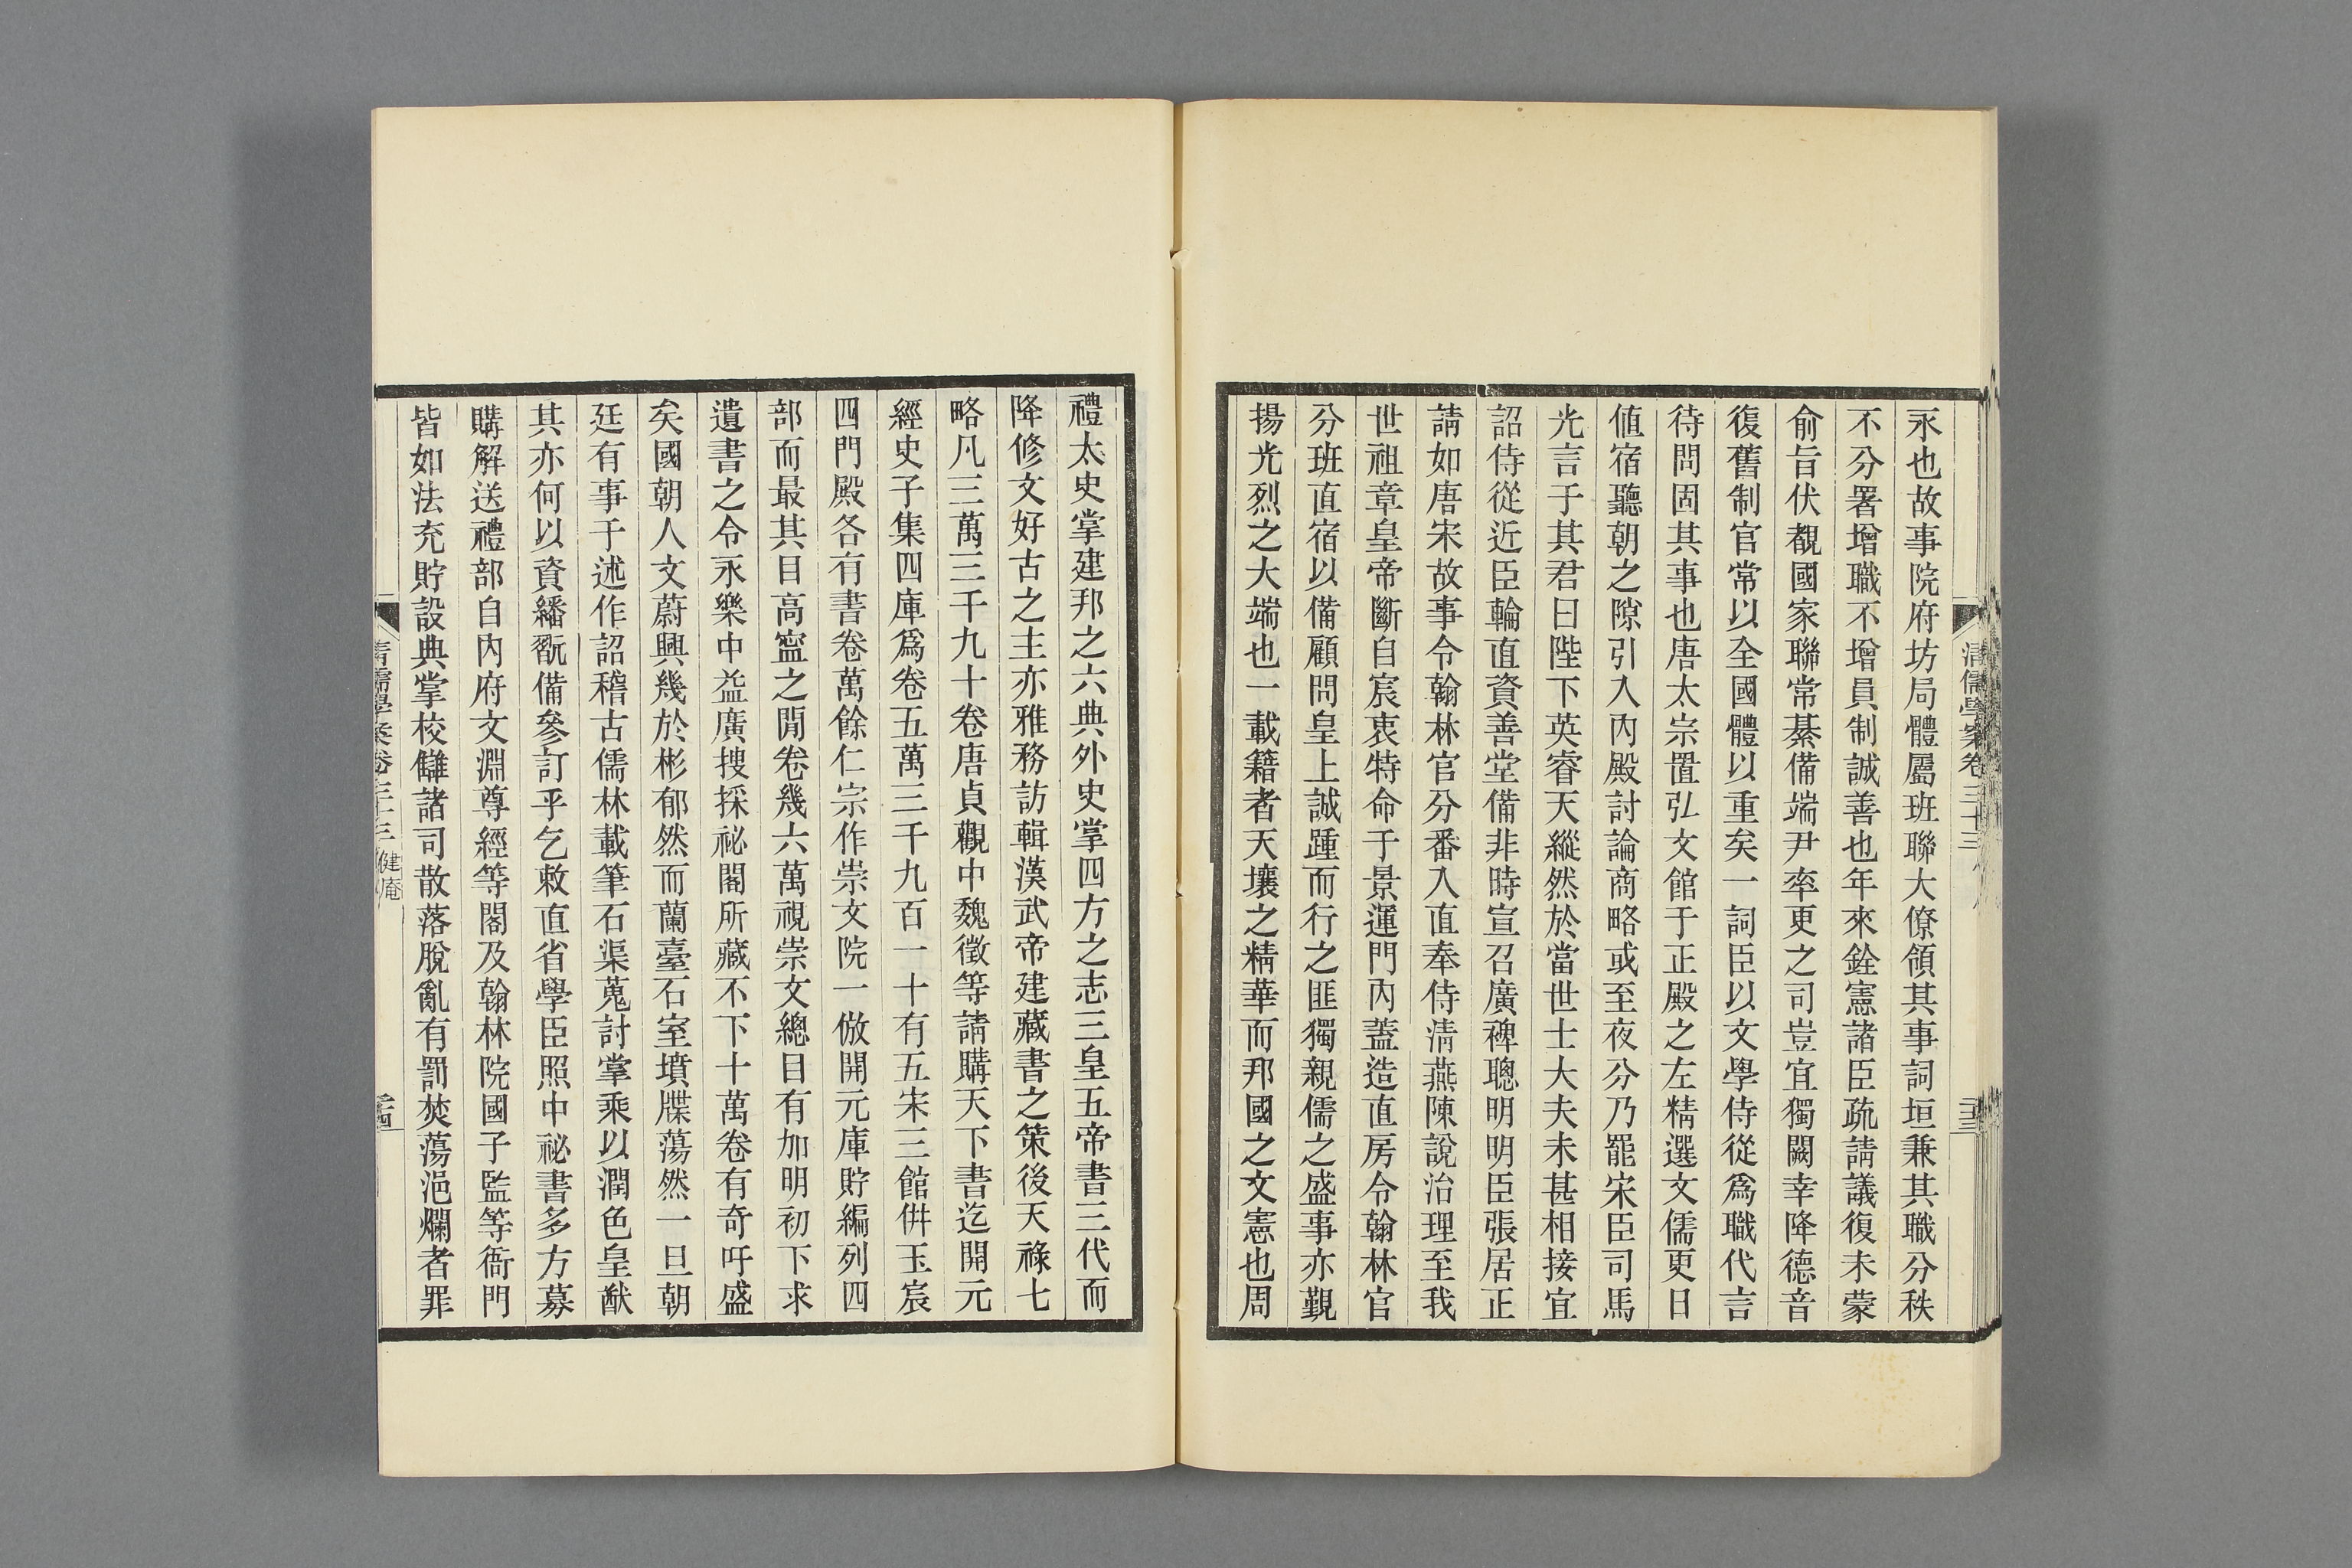 清儒學案卷三十三
永也故事院府坊局體屬班聯大僚領其事詞垣兼其職分秩
不分署增職不增員制誠善也年來銓憲諸臣疏請議復未蒙
俞旨伏覩國家聯常綦備端尹率更之司豈宜獨闕幸降德音
復舊制官常以全國體以重矣一詞臣以文學侍從爲職代言
待問固其事也唐太宗置弘文館于正殿之左精選文儒更日
値宿聽朝之隙引入內殿討論商略或至夜分乃罷宋臣司馬
光言于其君曰陛下英睿天縱然於當世士大夫未甚相接宜
詔侍從近臣輪直資善堂備非時宣召廣裨聰明明臣張居正
請如唐宋故事令翰林官分番入直奉侍淸燕陳說治理至我
世祖章皇帝斷自宸衷特命于景運門內蓋造直房令翰林官
分班直宿以備顧問皇上誠踵而行之匪獨親儒之盛事亦覲
揚光烈之大端也一載籍者天壤之精華而邦國之文憲也周
禮太史掌建邦之六典外史掌四方之志三皇五帝書三代而
降修文好古之主亦雅務訪輯漢武帝建藏書之策後天祿七
略凡三萬三千九十卷唐貞觀中魏徵等請購天下書迄開元
經史子集四庫爲卷五萬三千九百一十有五宋三館倂玉宸
四門殿各有書卷萬餘仁宗作崇文院一倣開元庫貯編列四
部而最其目高寍之閒卷幾六萬視崇文總目有加明初下求
遺書之令永樂中益廣搜採祕閣所藏不下十萬卷有奇吁盛
矣國朝人文蔚興幾於彬郁然而蘭臺石室墳牒蕩然一旦朝
廷有事于述作詔稽古儒林載筆石渠蒐討掌乘以潤色皇猷
其亦何以資繙翫備參訂乎乞敕直省學臣照中祕書多方募
購解送禮部自內府文淵尊經等閣及翰林院國子監等衙門
皆如法充貯設典掌校讎諸司散落脫亂有罰焚蕩浥爛者罪
清儒學案卷三十三 健庵